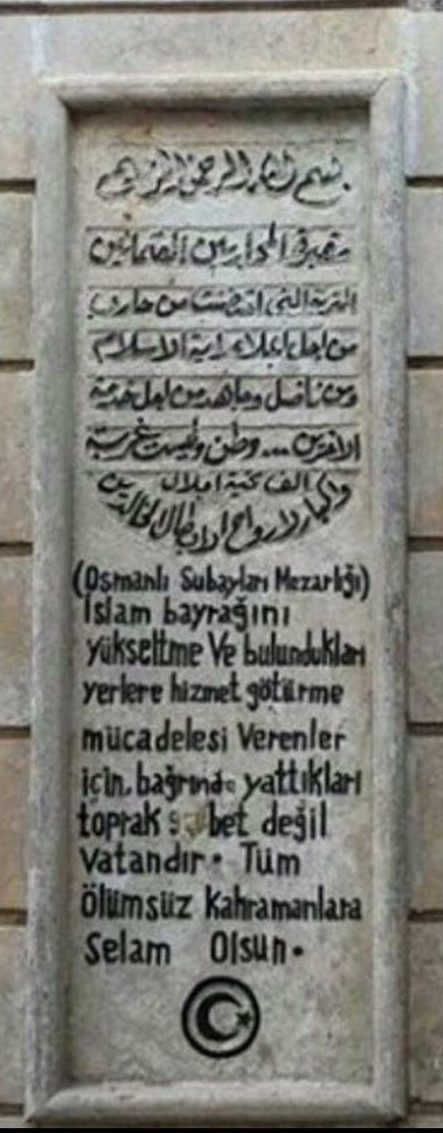 بسم الله الرحمن الرحيم
مقبرة المحاربين العثمانيين
التربة التي احتضنت من حارب
من اجل اعلاء راية الاسلام
ومن ناضل وجاهد من اجل خدمة
الاخرين ... وطن وليست غربة
الف تحية اجلال
واكبار لارواح الابطال الخالدين
(Osmanlı Subayları Mezarlığı)
İslam bayrağını
yükseltme Ve bulundukları
yerlere hizmet götürme
mücadelesi Verenler
için, bağrında yattıkları
toprak değil
Vatandır. Tüm
ölümsüz kahramanlara
Selam Olsun.